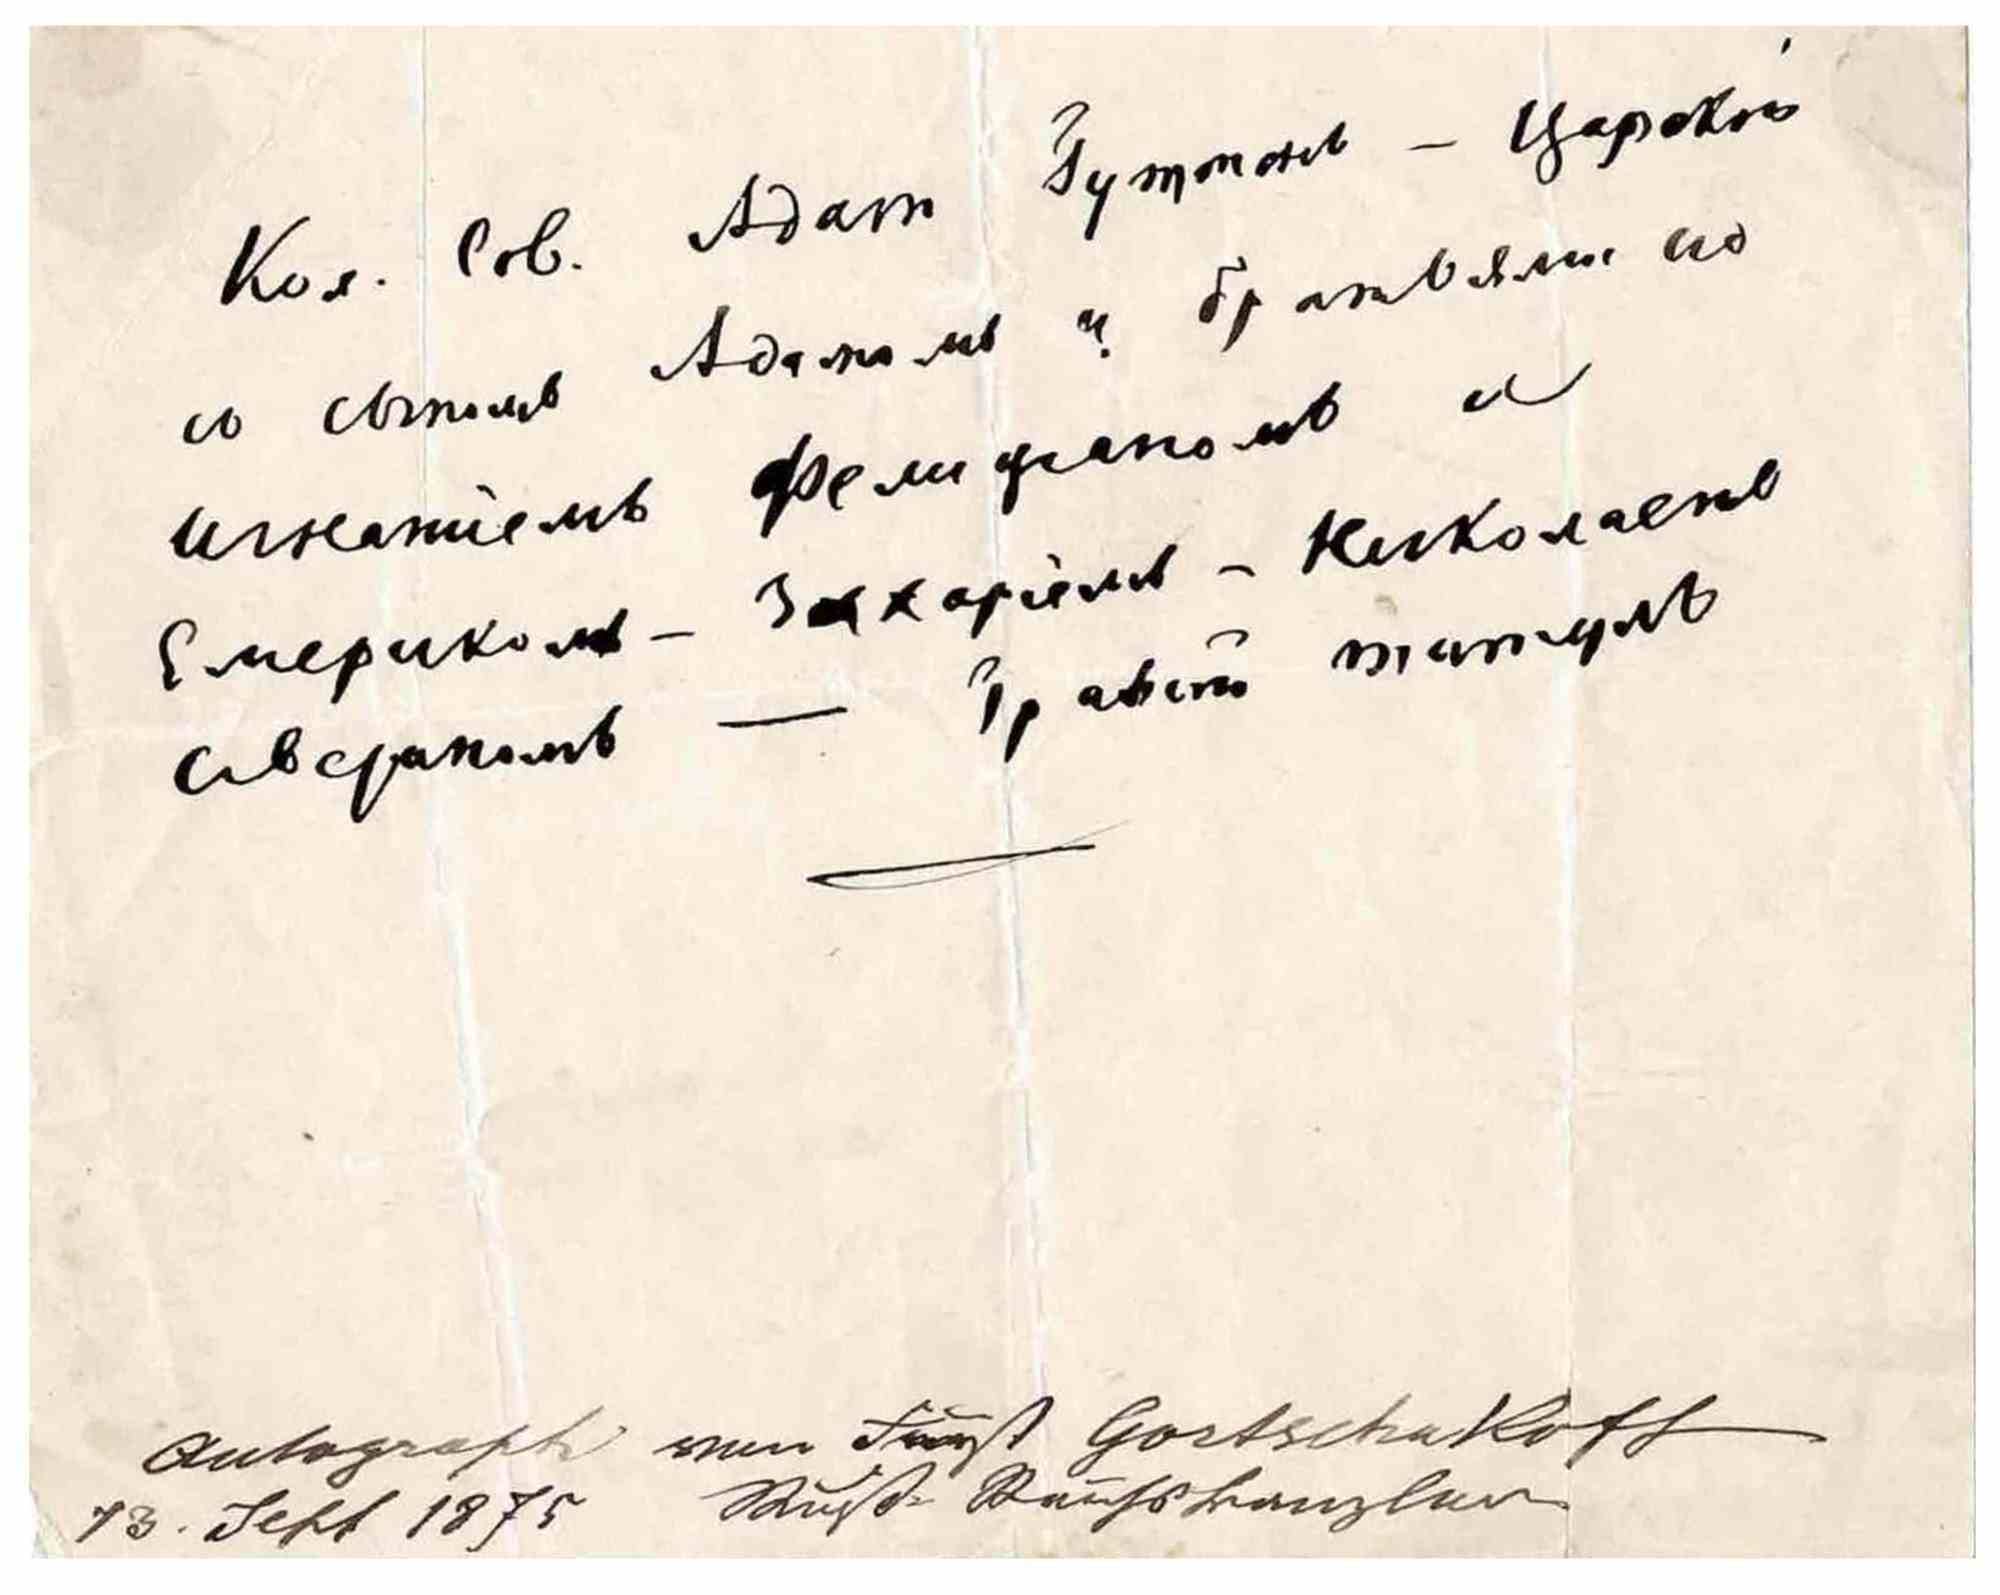 Кол. Сов. Адам Гуттенъ – Царской
со сыномъ Адамомъ и братьями его
Игнатіемъ Фелиціаномъ и
Емерикомъ – Захаріемъ – Николаемъ
Севериномъ — Графскій титулъ
Autograph von Fürst Gortschakoff
13. Sept 1875 Russ. Reichskanzler